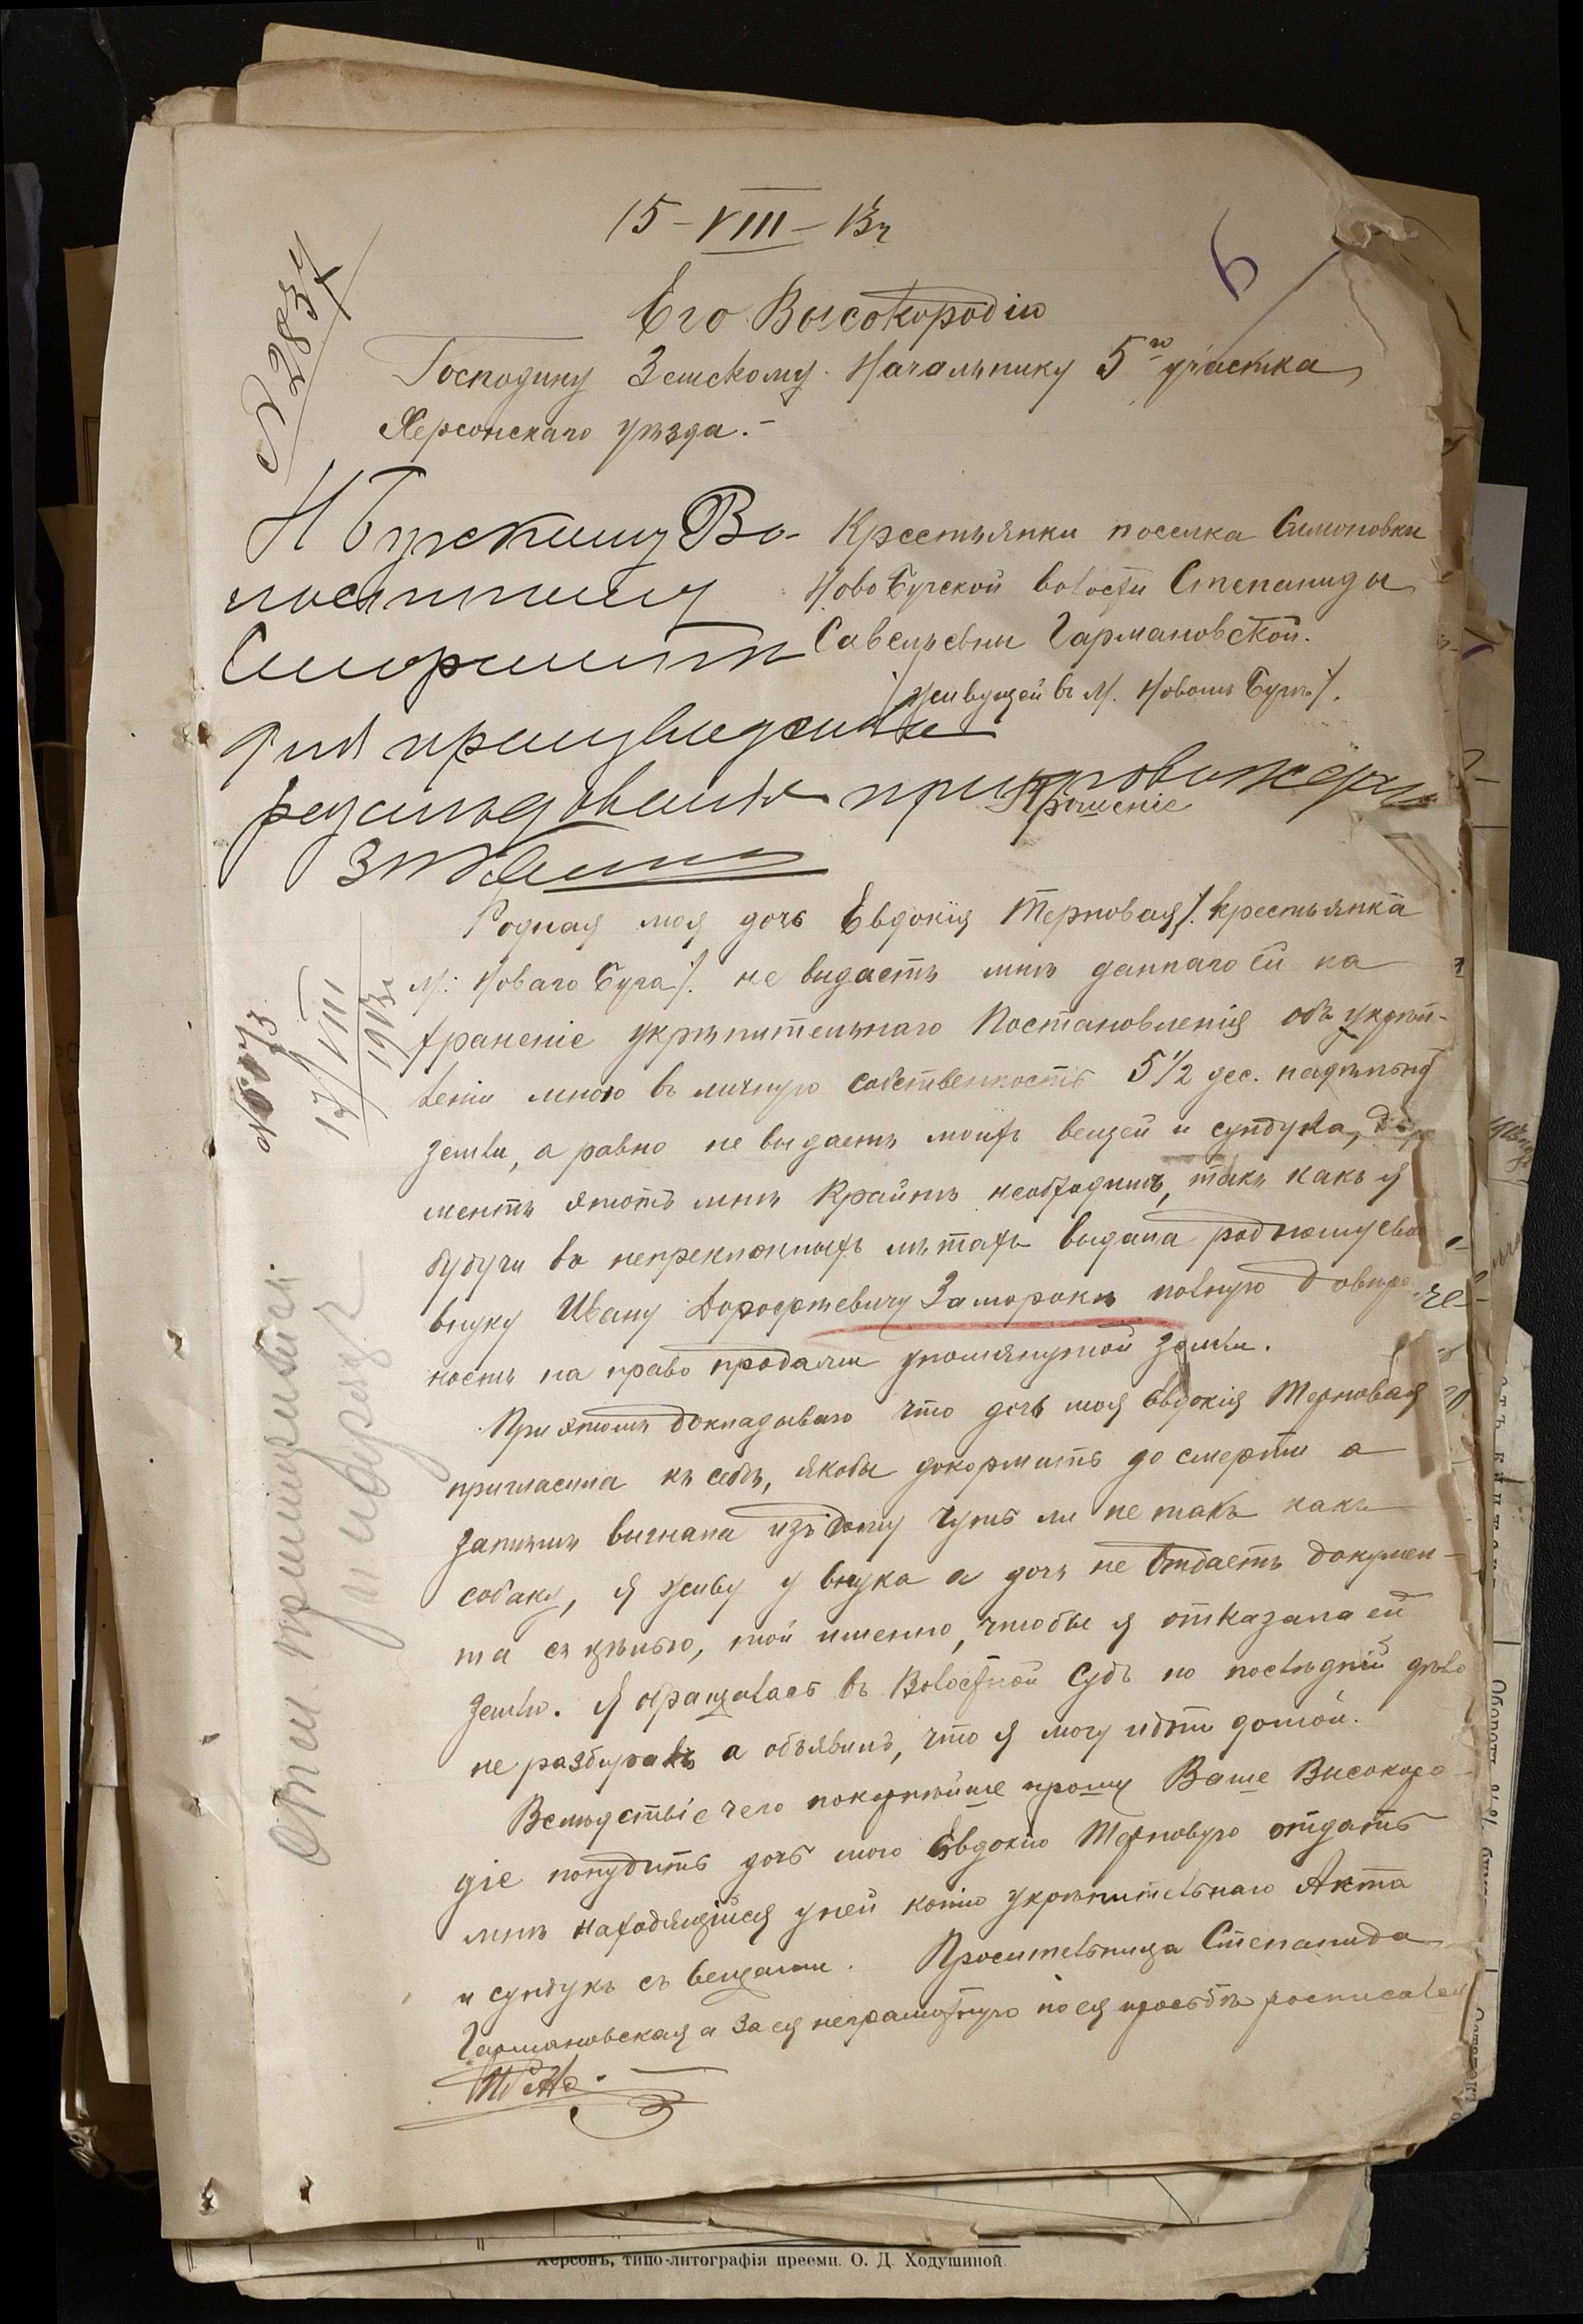 15-VIII-13г
6
№ 2837
Его Высокородію
Господину Земскому Начальнику 5го участка
Херсонскаго уѣзда.-
Н Бугскому Во-
лостному
Старшинѣ
для производства
разслѣдованія препровождаю
Крестьянки поселка Симоновки
НовоБугской волости Степаниды
Савельевны Гармановской.
/живущей въ м. Новомъ Бугѣ/.
Прошеніе
ЗНК
Родная моя дочь Евдокія Терновая /. крестьянка
м. Новаго Буга /. не выдаетъ мнѣ даннаго ей на
храненіе укрѣпительнаго Постановленія объ укрѣп-
леніи мною въ личную собственность 5 1/2 дес. надѣльной
земли, а равно не выдаетъ моихъ вещей и сундука, доку
ментъ этотъ мнѣ крайнѣ необходимъ, такъ какъ я
будучи въ непреклонныхъ лѣтахъ выдала родному своему
внуку Ивану Дорофѣевичу Заморокѣ полную довѣрен
ность на право продажи упомянутой земли.
При этомъ докладываю что дочь моя Евдокія Терновая
пригласила къ себѣ, якобы докормить до смерти а
затѣмъ выгнала изъ дому чуть ли не такъ какъ
собаку, я живу у внука а дочь не отдаетъ докумен-
та съ цѣлью, той именно, чтобы я отказала ей
землю. Я обращалась въ Волостной Судъ но послѣдній дѣло
не разбиралъ а объявилъ, что я могу идти домой.
Вслѣдствіе чего покорнѣйше прошу Ваше Высокоро
діе понудить дочь мою Евдокію Терновую отдать
мнѣ находящійся у ней копію укрѣпительнаго Акта
и сундукъ съ вещами. Просительница Степанида
Гармановская а за ея неграмотную по ея просьбѣ росписался
№ 6073
17/VIII
1913г
Херсонъ, типо-литографія преемн. О. Д. Ходушиной.